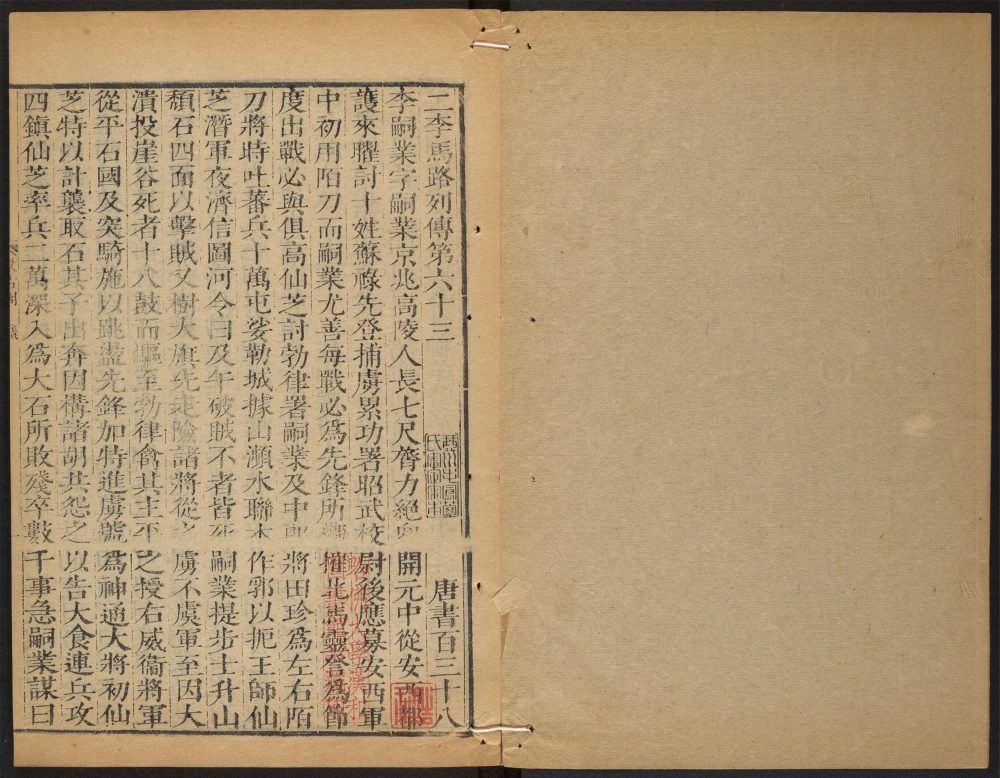 二李馬路列傳第六十三 唐書百三十八
李嗣業字嗣業京兆高陵人長七尺膂力絕 開元中從安西都
護來曜討十姓蘇祿先登捕虜累功署昭武校尉後應募安西軍
中初用陌刀而嗣業尤善每戰必爲先鋒所 摧北馬靈詧爲節
度出戰必與俱高仙芝討勃律署嗣業及中郎將田珍爲左右陌
刀將時吐蕃兵十萬屯娑勒城據山瀕水聯木作郛以扼王師仙
芝潛軍夜濟信圖河令曰及午破賊不者皆死嗣業提步士升山
頹石四面以擊賊又樹大旗先走險諸將從之虜不虞軍至因大
潰投崖谷死者十八鼓而驅至勃律禽其主平之授右威衞將軍
從平石國及突騎施以跳盪先鋒加特進虜號爲神通大將初仙
芝特以計襲取石其子出奔因構諸胡共怨之以告大食連兵攻
四鎮仙芝率兵二萬深入爲大石所敗殘卒數千事急嗣業謀曰